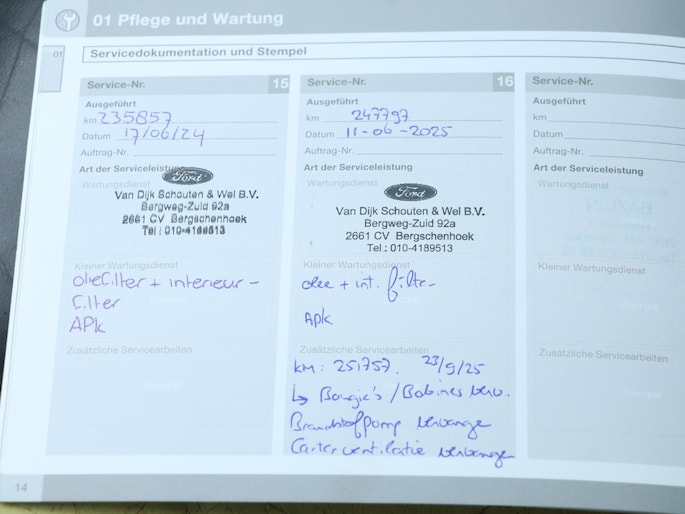 01 Pflege und Wartung
01
Servicedokumentation und Stempel
Service-Nr. 15
Ausgeführt
km 235857
Datum 17/06/24
Auftrag-Nr.
Art der Serviceleistung
Wartungsdienst
Ford
Van Dijk Schouten & Wel B.V.
Bergweg-Zuid 92a
2661 CV Bergschenhoek
Tel : 010-4189513
Kleiner Wartungsdienst
oliefilter + interieur -
filter
APK
Stempel
Zusätzliche Servicearbeiten
Stempel
Service-Nr. 16
Ausgeführt
km 247797
Datum 11-06-2025
Auftrag-Nr.
Art der Serviceleistung
Wartungsdienst
Ford
Van Dijk Schouten & Wel B.V.
Bergweg-Zuid 92a
2661 CV Bergschenhoek
Tel.: 010-4189513
Kleiner Wartungsdienst
olie + int. filter
APK
Zusätzliche Servicearbeiten
km: 251757. 23/9/25
↳ Bougie's / Bobines verv.
Brandstofpomp vervange
Carterventilatie vervangen
Service-Nr.
Ausgeführt
km
Datum
Auftrag-Nr.
Art der Serviceleistung
Wartungsdienst
Kleiner Wartungsdienst
Stempel
Zusätzliche Servicearbeiten
Stempel
14